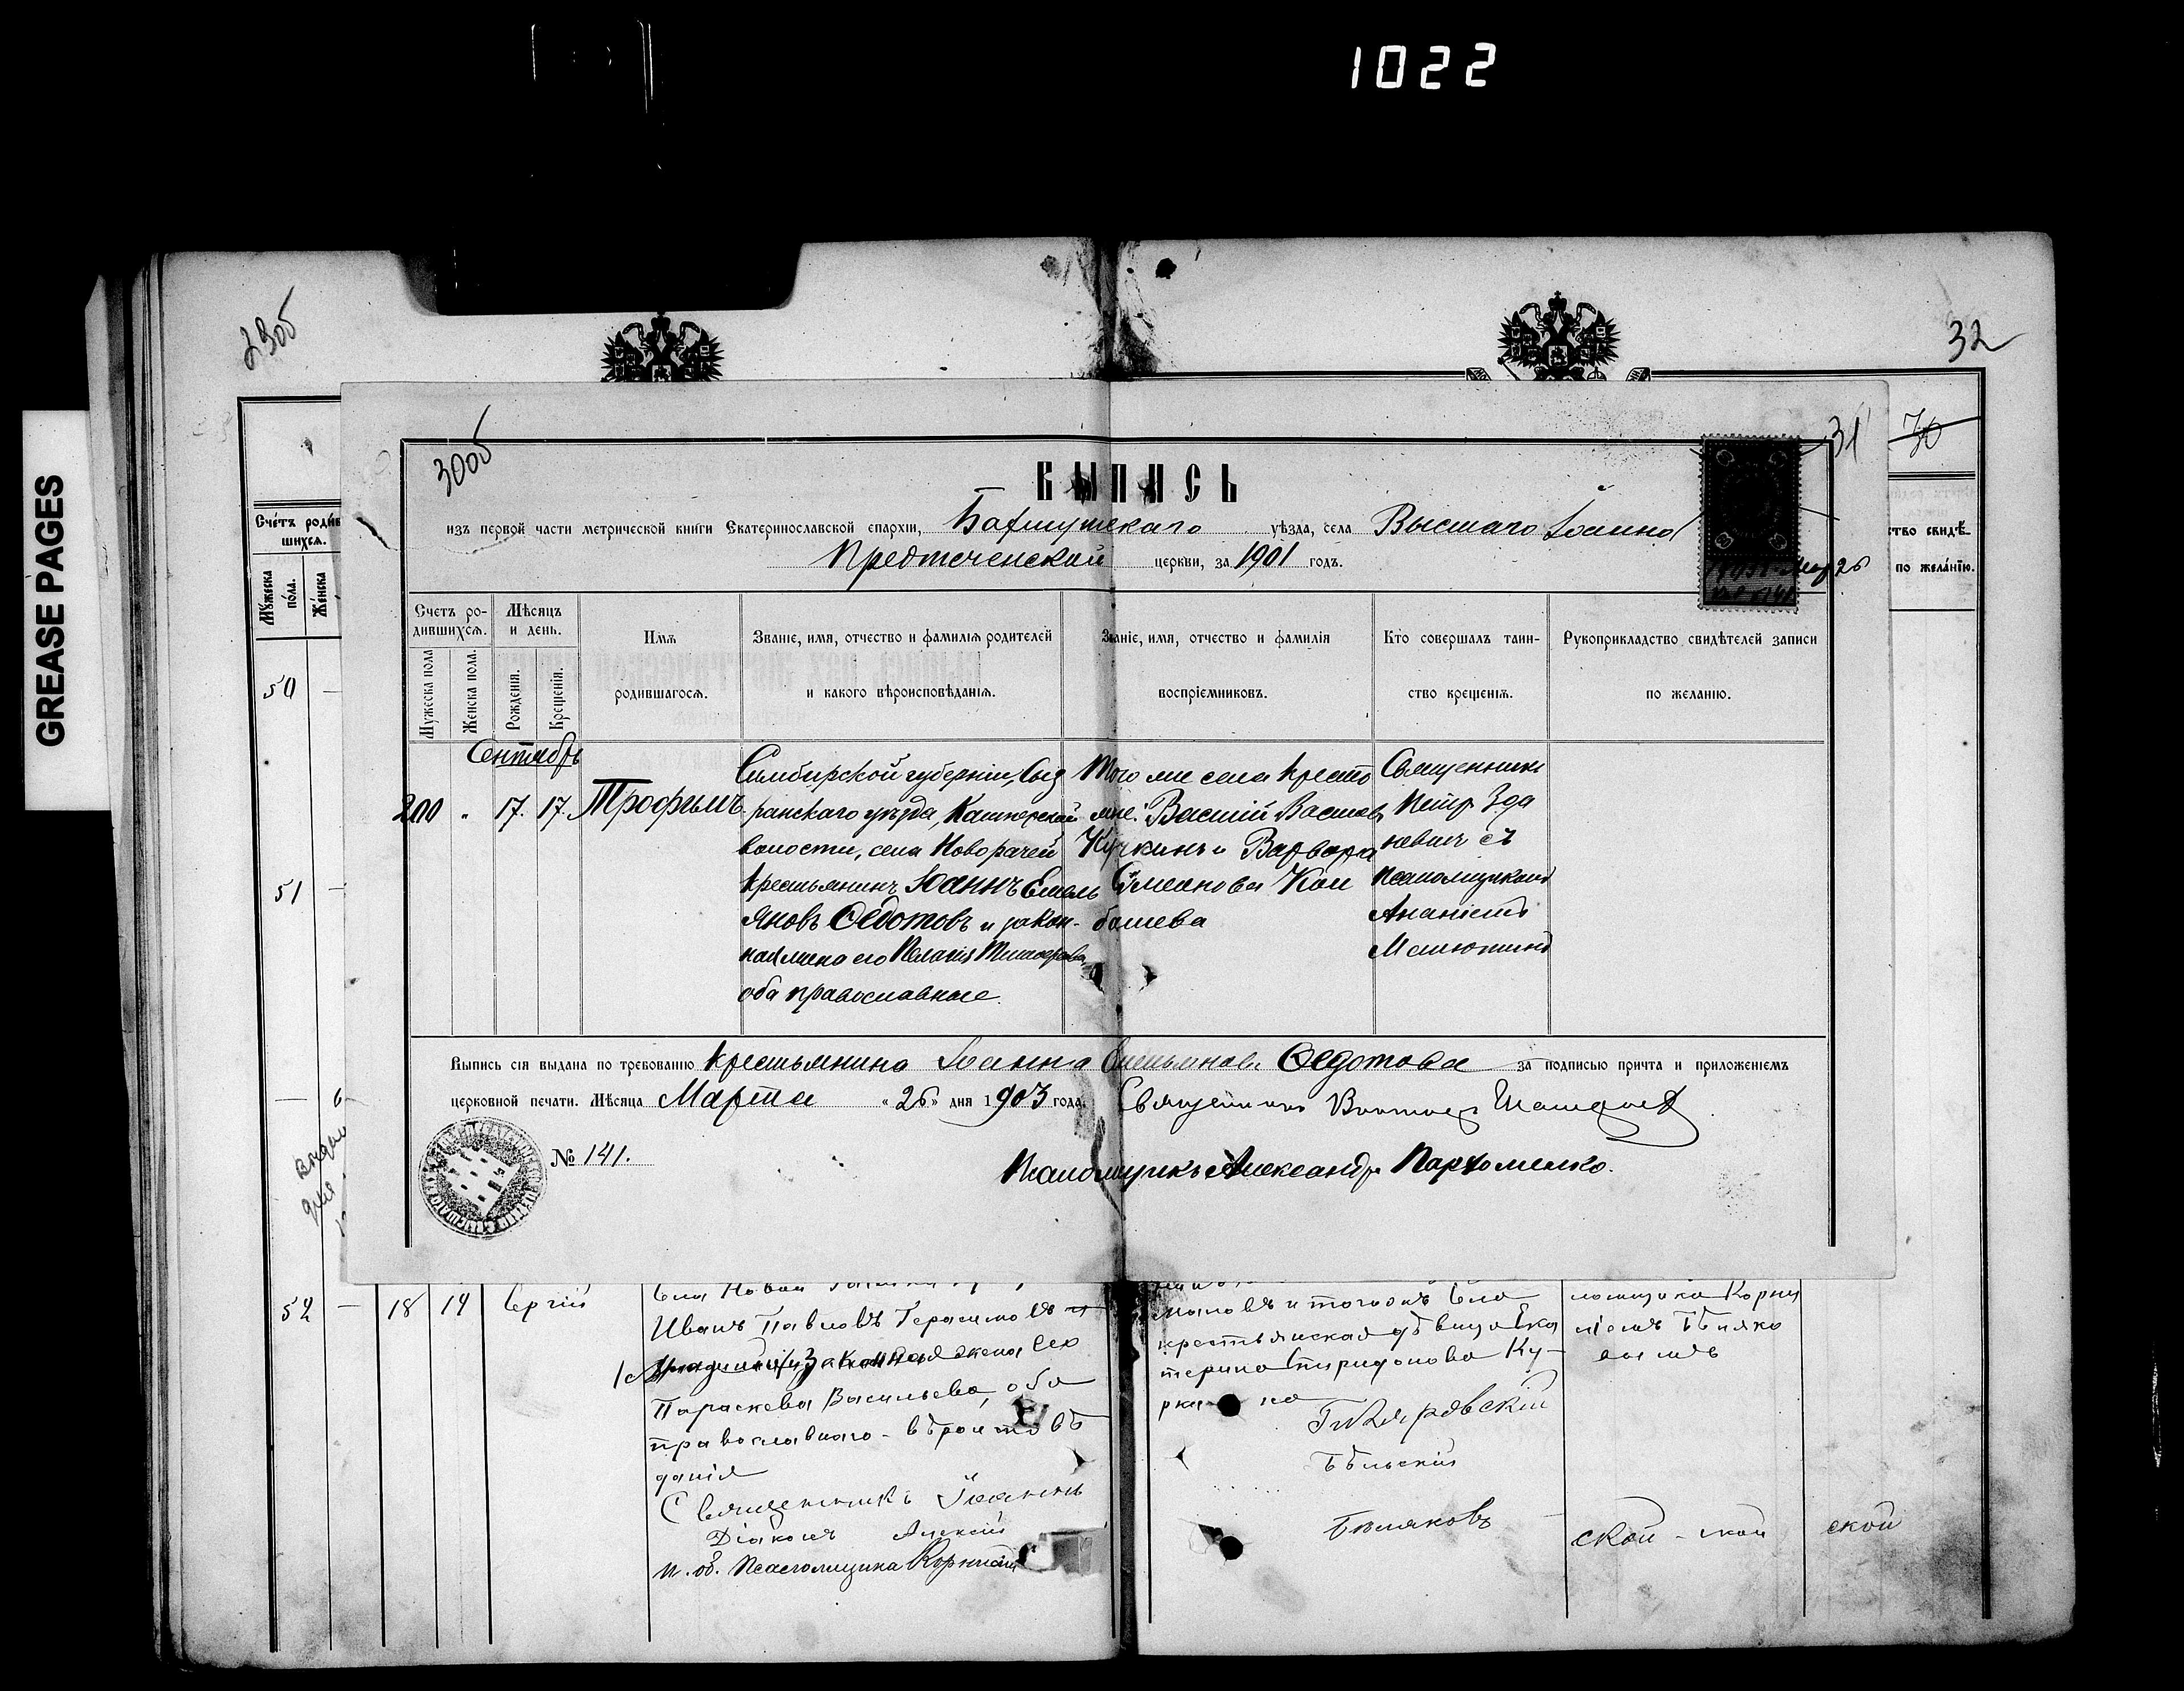 1022
29об
32
GREASE PAGES
30
300б
31
ВЫПИСЬ
изъ первой части метрической книги Екатеринославской епархіи, Бахмутскаго уѣзда, села Высшаго Іоанно
Предтеченской церкви, за 1901 годъ.
Мар 26
Счетъ родив
шихся.
Мужеска пола.
Женска
ство свидѣ
по желанію.
Счетъ ро-
дившихся.
Мѣсяцъ
и день.
Мужеска пола
Женска пола.
Рожденія.
Крещенія.
Имя
родившагося.
Званіе, имя, отчество и фамилія родителей
и какого вѣроисповѣданія.
Званіе, имя, отчество и фамилія
воспріемниковъ.
Кто совершалъ таин-
ство крещенія.
Рукоприкладство свидѣтелей записи
по желанію.
Сентябрь
200 " 17. 17. Трофимъ
Симбирской губерніи, Сыз
ранскаго уѣзда, Кашперской
волости, села Новорачей
крестьянинъ Іоаннъ Емель
яновъ Ѳедотовъ и закон-
ная жена его Пелагія Тимоѳеева,
оба православные.
Того же села кресть
яне: Василій Васильев
Кучкинъ и Варвара
Симеонова Кол
башева
Священникъ
Петръ Зда
невичъ съ
псаломщикомъ
Ананіемъ
Малютинъ
50
51
Выпись сія выдана по требованію крестьянина Іоанна Емельянова Ѳедотова за подписью причта и приложеніемъ
церковной печати. Мѣсяца Марта «26» дня 1903 года. Священникъ
№ 141.
Псаломщикъ Александръ Пархоменко.
52 — 18 19 Сергій
Иванъ Павловъ Герасимовъ и
законная жена его
Параскева Васильева, оба
православнаго вѣроисповѣ
данія
Священникъ Іоаннъ
Діаконъ Алексій
и. об. Псаломщика Корнилій
мановъ и тогоже села
крестьянская дѣвица Ека
терина Спиридонова Ку-
ркина
Бѣльскій
Бѣляковъ
ломщика Корни
ліемъ Бѣляко
вымъ
ской - ской
ской